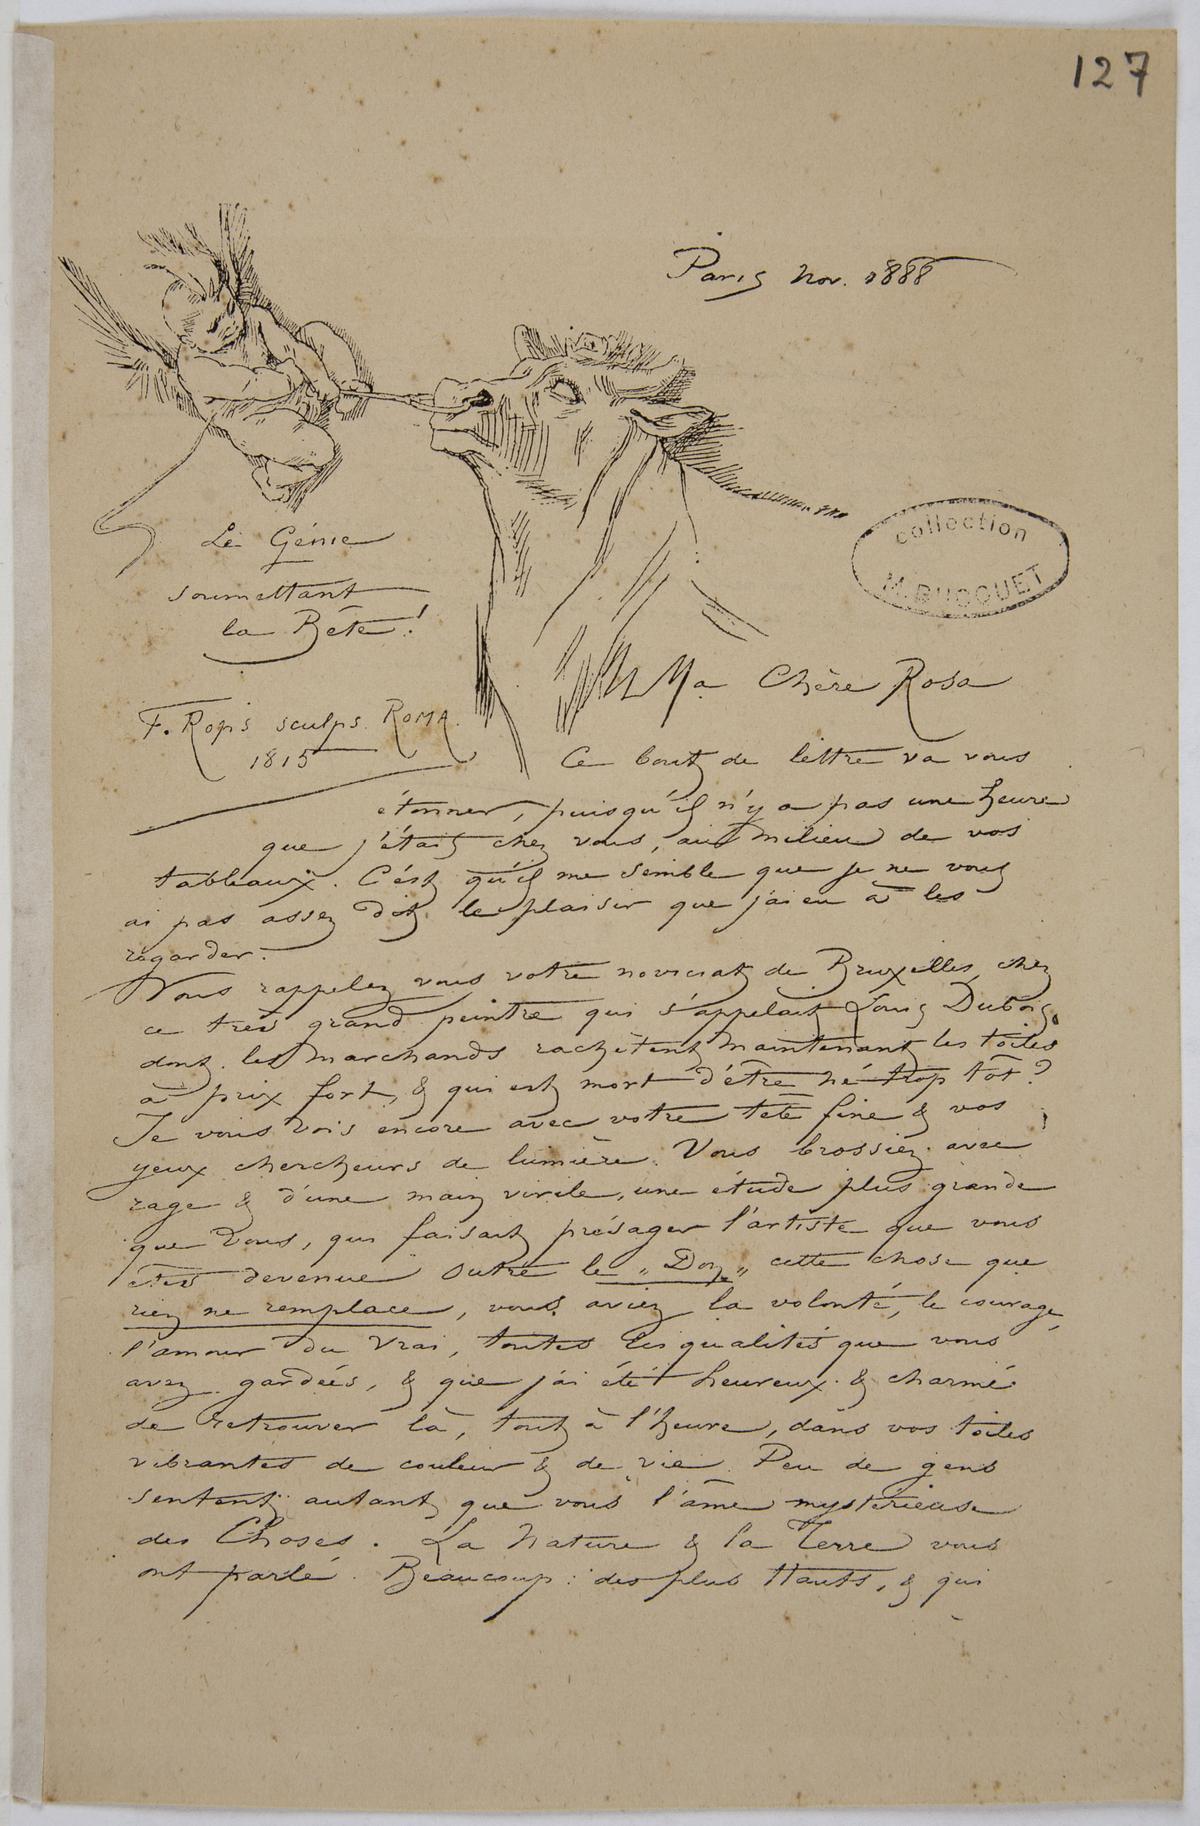 127
Paris Nov. 1888
collection
M. BUCQUET
Le Génie
soumettant
la Bête !
F. Rops sculps. ROMA.
1815
Ma Chère Rosa
Ce bout de lettre va vous
étonner, puisqu'il n'y a pas une heure
que j'étais chez vous, au milieu de vos
tableaux. C'est qu'il me semble que je ne vous
ai pas assez dit le plaisir que j'ai eu à les
regarder.
Vous rappelez vous votre noviciat de Bruxelles, chez
ce très grand peintre qui s'appelait Louis Dubois,
dont les marchands rachètent maintenant les toiles
à prix fort, & qui est mort d'être né trop tôt ?
Je vous vois encore avec votre tête fine & vos
yeux chercheurs de lumière. Vous brossiez avec
rage & d'une main virile, une étude plus grande
que vous, qui faisait présager l'artiste que vous
êtes devenue. Outre le „Don„ cette chose que
rien ne remplace, vous aviez la volonté, le courage,
l'amour du Vrai, toutes les qualités que vous
avez gardées, & que j'ai été heureux & charmé
de retrouver là, tout à l'heure, dans vos toiles
vibrantes de couleur & de vie. Peu de gens
sentent autant que vous l'âme mystérieuse
des Choses. La Nature & la Terre vous
ont parlé. Beaucoup : des plus Hauts, & qui